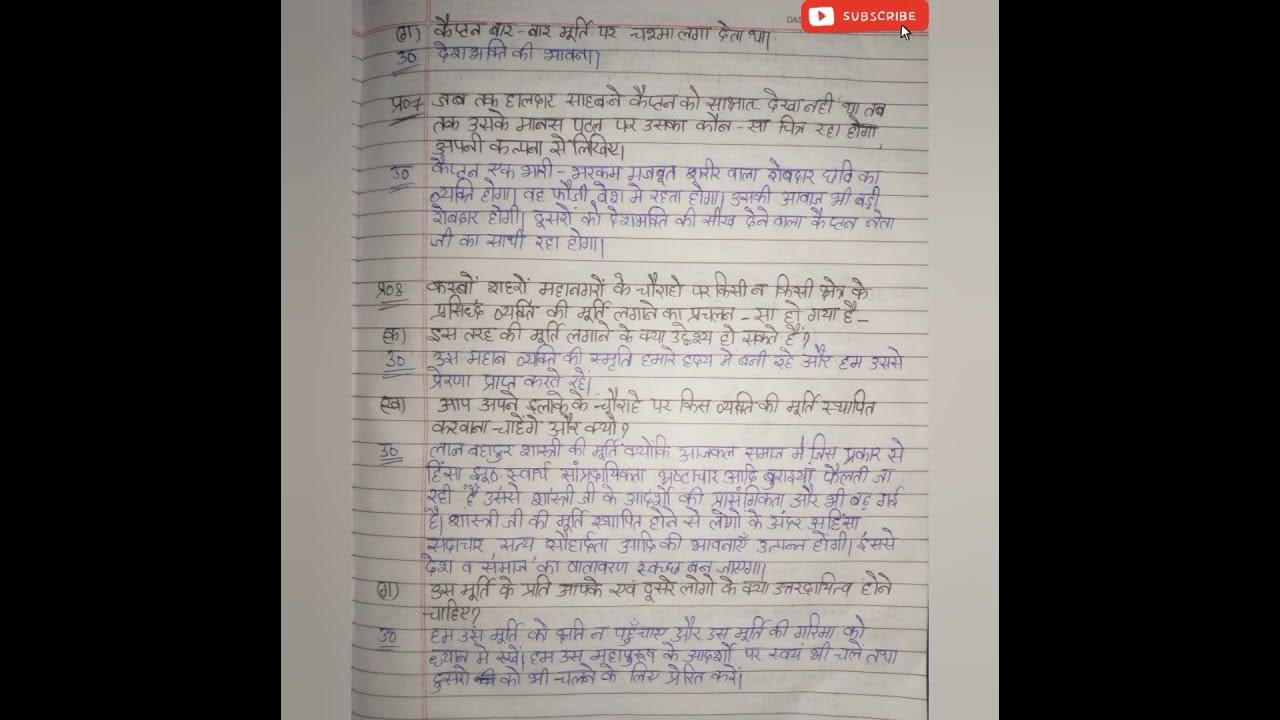 DAT
SUBSCRIBE
(ग) कैप्टन बार-बार मूर्ति पर चश्मा लगा देता था।
उ० देशभक्ति की भावना।
प्र०7 जब तक हालदार साहब ने कैप्टन को साक्षात देखा नही था तब
तक उसके मानस पटल पर उसका कौन-सा चित्र रहा होगा,
अपनी कल्पना से लिखिए।
उ० कैप्टन एक भारी-भरकम मजबूत शरीर वाला रोबदार छवि का
व्यक्ति होगा। वह फौजी वेश मे रहता होगा। उसकी आवाज भी बड़ी
रोबदार होगी। दूसरों को देशभक्ति की सीख देने वाला कैप्टन नेता
जी का साथी रहा होगा।
प्र०8 कस्बों शहरों महानगरों के चौराहो पर किसी न किसी क्षेत्र के
प्रसिद्ध व्यक्ति की मूर्ति लगाने का प्रचलन-सा हो गया है-
(क) इस तरह की मूर्ति लगाने के क्या उद्देश्य हो सकते हैं?
उ० उस महान व्यक्ति की स्मृति हमारे हृदय मे बनी रहे और हम उससे
प्रेरणा प्राप्त करते रहें।
(ख) आप अपने इलाके के चौराहे पर किस व्यक्ति की मूर्ति स्थापित
करवाना चाहेंगे और क्यो?
उ० लाल बहादुर शास्त्री की मूर्ति क्योकि आजकल समाज मे जिस प्रकार से
हिंसा झूठ स्वार्थ सांप्रदायिकता भ्रष्टाचार आदि बुराइयाँ फैलती जा
रही है उससे शास्त्री जी के आदर्शो की प्रासंगिकता और भी बढ़ गई
है। शास्त्री जी की मूर्ति स्थापित होने से लोगो के अंदर अहिंसा,
सदाचार, सत्य सौहार्दता आदि की भावनाएँ उत्पन्न होंगी। इससे
देश व समाज का वातावरण स्वच्छ बन जाएगा।
(ग) उस मूर्ति के प्रति आपके एवं दूसरे लोगो के क्या उत्तरदायित्व होने
चाहिए?
उ० हम उस मूर्ति को क्षति न पहुँचाए और उस मूर्ति की गरिमा को
ध्यान मे रखें। हम उस महापुरुष के आदर्शो पर स्वयं भी चलें तथा
दुसरो को भी चलने के लिए प्रेरित करें।